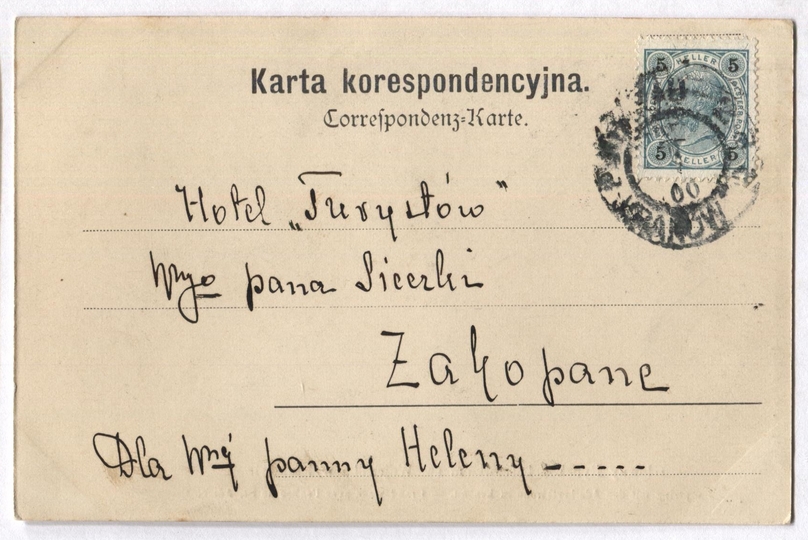 Karta korespondencyjna.
Correspondenz-Karte.
5 HELLER 5
5 HELLER 5
00
KRAKÓW
Hotel „Turystów”
Wgo pana Sieczki
Zakopane
Dla Wnej panny Heleny -----